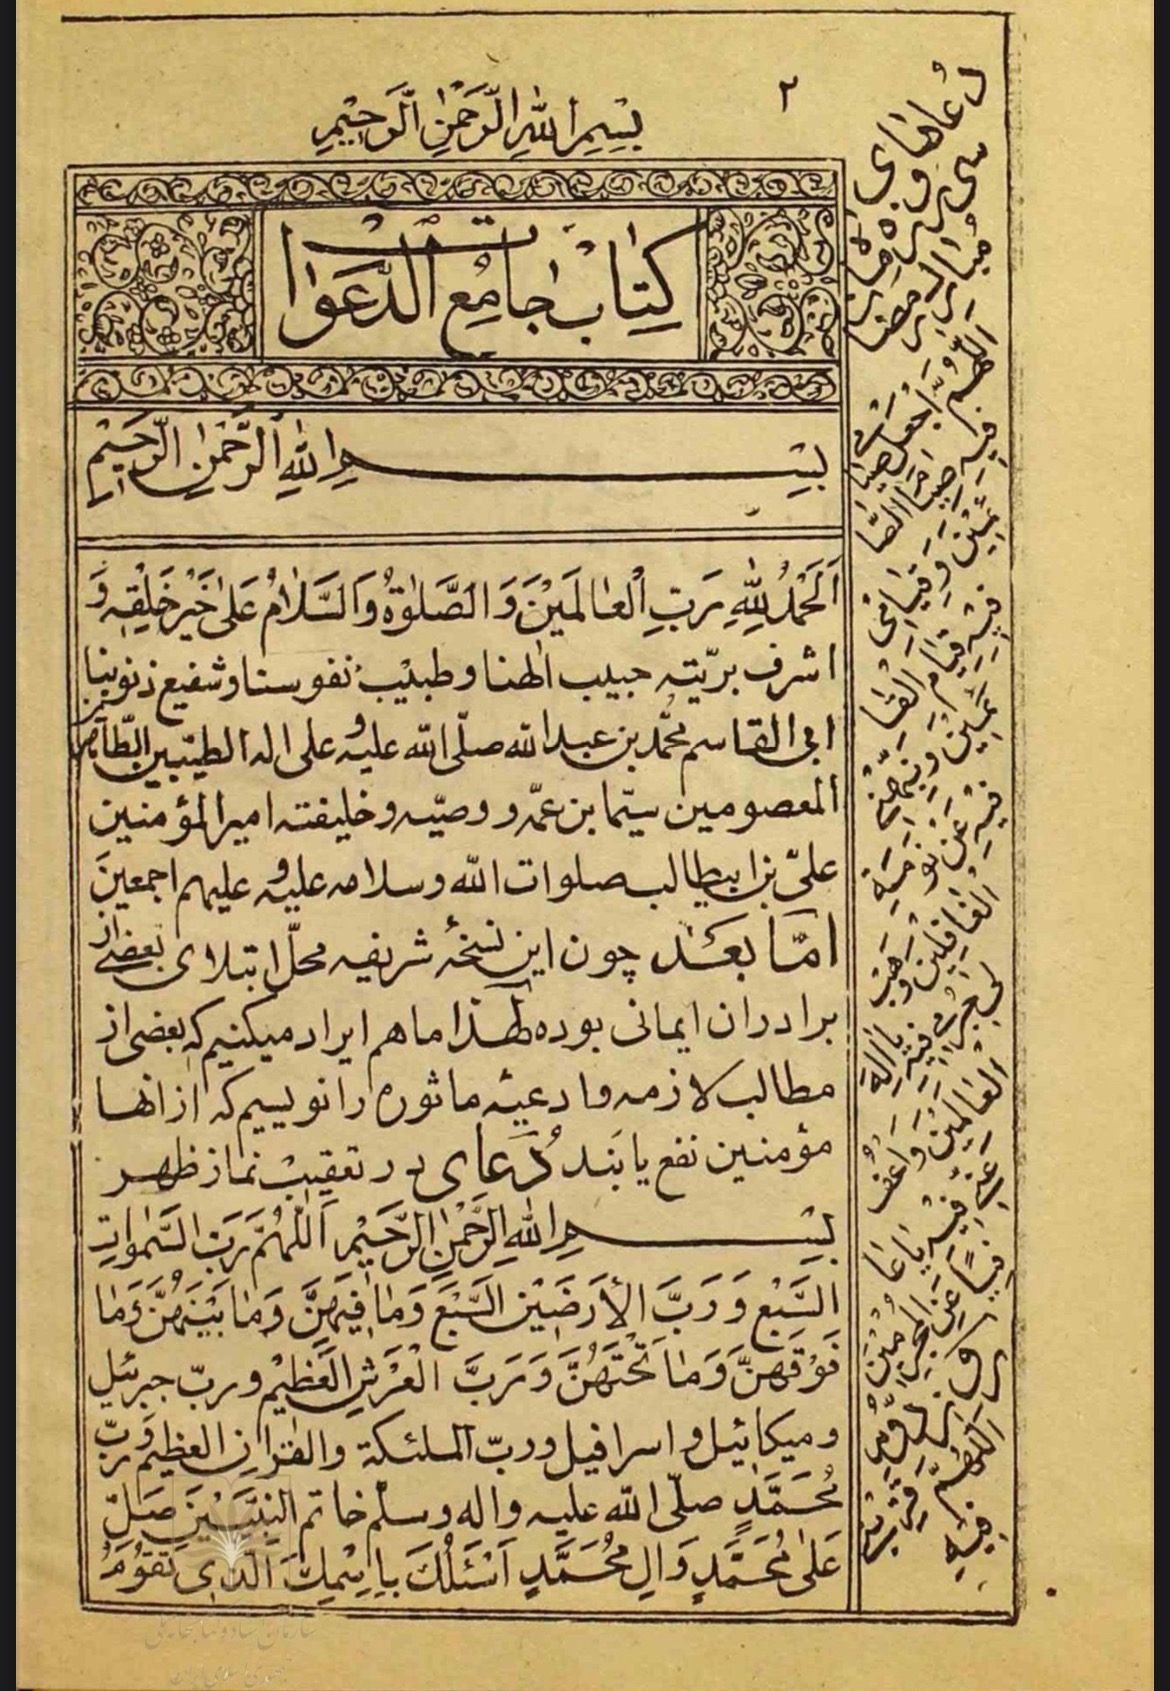 ٢
بِسْمِ اللهِ الرَّحْمٰنِ الرَّحِیْمِ
کِتَابْ جامِعُ الدَّعَوٰات
بِسْمِ اللهِ الرَّحْمٰنِ الرَّحِیْمِ
اَلْحَمْدُ لِلّٰهِ رَبِّ الْعٰالَمیْنَ وَ الصَّلوٰةُ وَ السَّلٰامُ عَلیٰ خَیْرِ خَلْقِهِ وَ
اشرف بریّته حبیب الٰهنا و طبیْب نفوسنا و شفیع ذنوبنا
ابی القاسم محُمّد بن عبد الله صلّی الله علیه و علی اله الطیّبین الطّاهرین
المعصومین سیّما بن عمّه و وصیّه و خلیفته امیر المؤمنین
علیّ بن ابیطالب صلوات الله و سلامه علیه و علیهم اجمعینَ
امّا بعَد چون این نسخهٔ شریفه محلّ ابتلای بعضی از
برادران ایمانی بوده لهذا ما هم ایراد میکنیم که بعضی از
مطالب لازمه و ادعیهٔ ماثوره را نویسیم که از انها
مؤمنین نفع یابَند دُعای در تعقیب نماز ظهر
بِسْمِ اللهِ الرَّحْمٰنِ الرَّحیْمِ اَللّٰهُمَّ رَبَّ السَّمٰواتِ
السَّبْعِ وَ رَبَّ الْأَرَضیْنَ السَّبْعِ وَ مٰا فیهِنَّ وَ مٰا بَیْنَهُنَّ وَ مٰا
فَوْقَهُنَّ وَ مٰا تَحْتَهُنَّ وَ رَبَّ الْعَرْشِ الْعَظیْمِ و ربّ جبرئیل
و میکائیل و اسرافیل و ربّ الملئکة و القران العظیم وَ ربَّ
مُحَمَّدٍ صلّی الله علیه و اله و سلّم خاتم النَبیّیْنَ صَلِّ
عَلیٰ مُحَمَّدٍ وَ الِ مُحَمَّدٍ اَسْئَلُكَ بِاِسْمِكَ الَّذی تَقُوْمُ
دُعاهای
سی و
روزهٔ ماه
مبارك
رمضان
اَللّٰهُمَّ
اجْعَلْ صِیٰامی
فیهِ صِیٰامَ الصّٰا
ئِمیْنَ وَ قِیٰامی
فیْهِ قِیٰامَ الْقٰا
ئِمیْنَ وَ نَبِّهْنی
فیْهِ عَنْ نَوْمَةِ
الْغٰافِلیْنَ وَ هَبْ
لی جُرْمی فیْهِ یٰا اِلٰهَ
الْعٰالَمیْنَ وَ اعْفُ
عَنّی فیْهِ یٰا عٰا
فِیًا عَنِ الْمُجْرِمیْنَ
اَللّٰهُمَّ قَرِّبْنی
فیْهِ